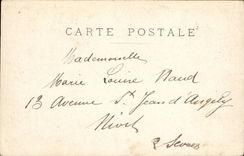 CARTE POSTALE
Mademoiselle
Marie Louise Naud
13 Avenue St Jean d'Angély
Niort
2 Sèvres